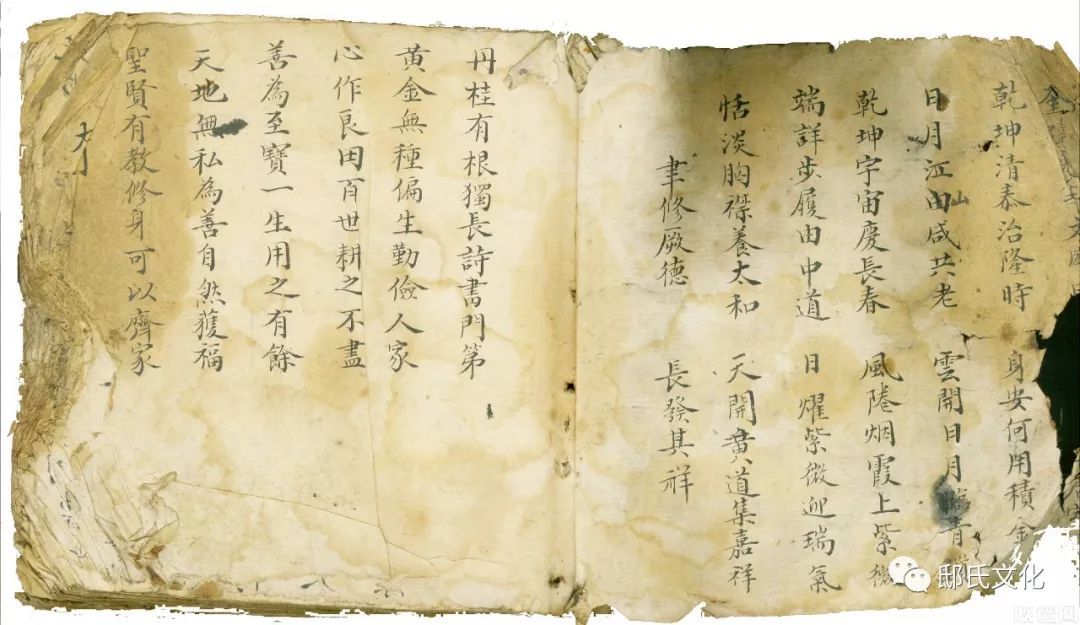 奎
乾坤清泰治隆時 身安何用積金
日月江山咸共老 雲開日月臨青
乾坤宇宙慶長春 風捲烟霞上紫微
端詳步履由中道 日耀紫微迎瑞氣
恬淡胸襟養太和 天開黄道集嘉祥
聿修厥德 長發其祥
丹桂有根獨長詩書門第
黄金無種偏生勤儉人家
心作良田百世耕之不盡
善為至寶一生用之有餘
天地無私為善自然獲福
聖賢有教修身可以齊家
邸氏文化
族谱网